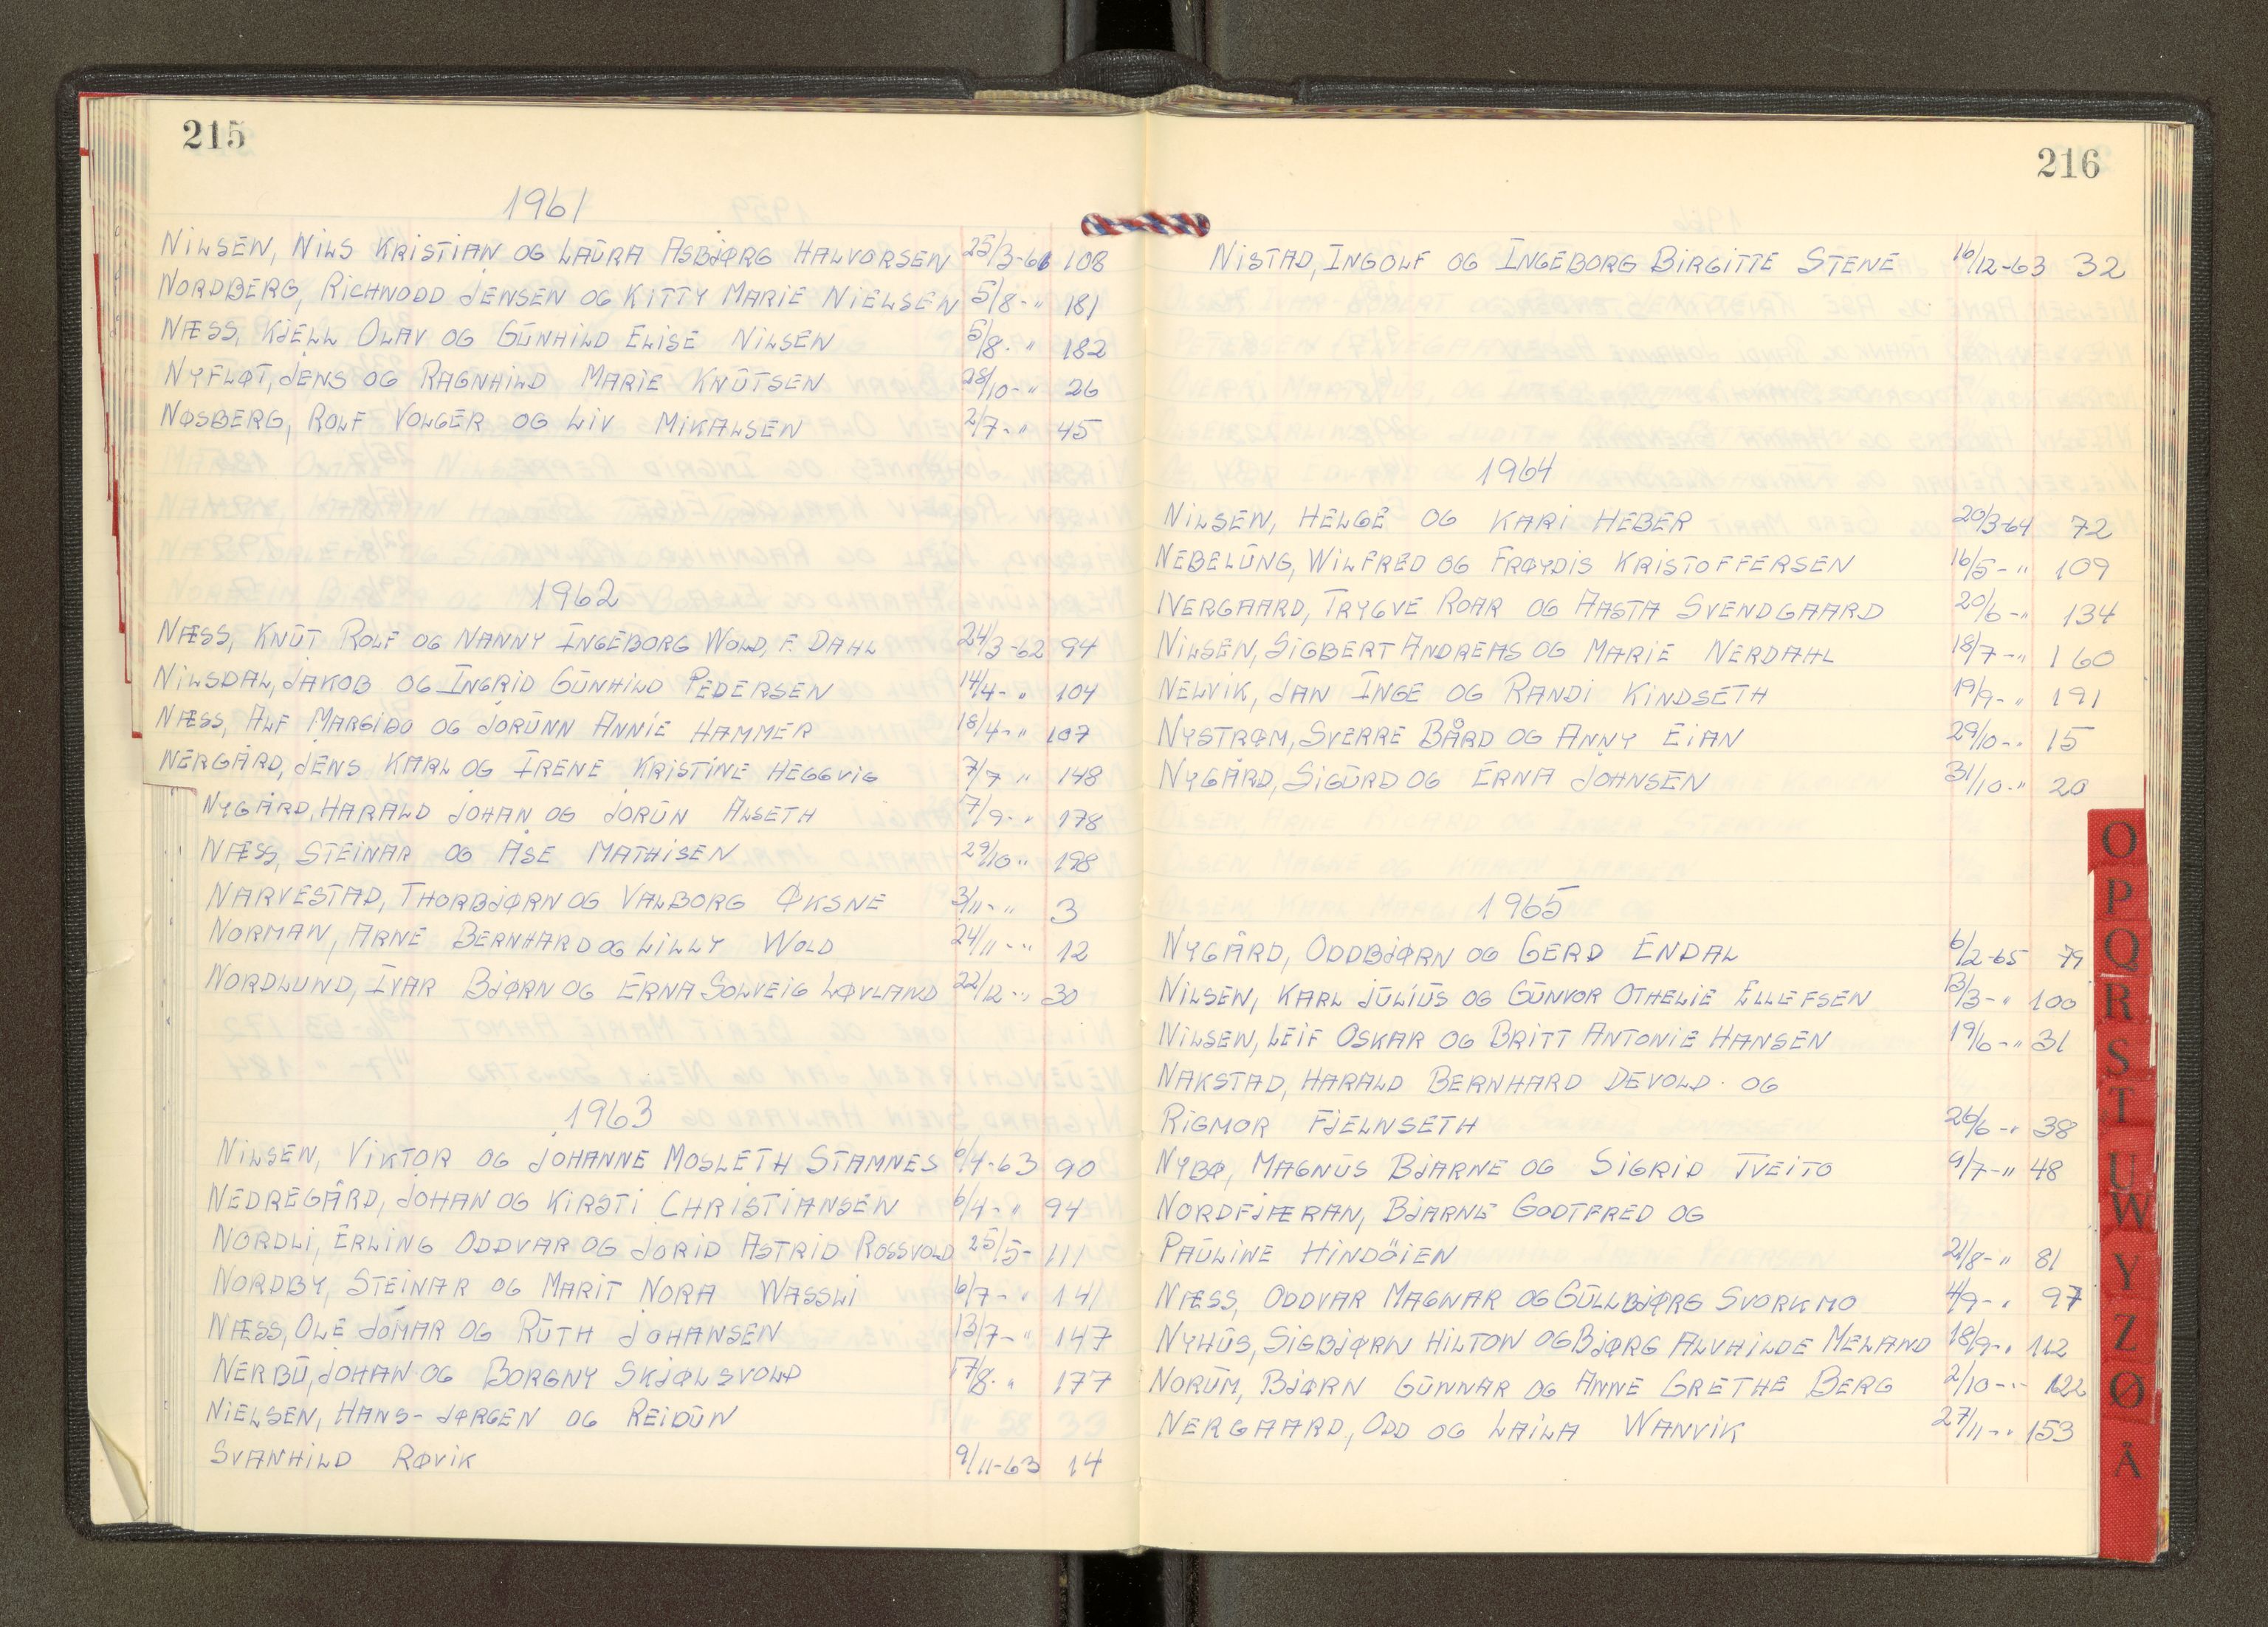 215
1961
NILSEN, NILS KRISTIAN OG LAURA ASBJØRG HALVORSEN 25/3-61 108
NORDBERG, RICHNODD JENSEN OG KITTY MARIE NIELSEN 5/8-" 181
NÆSS, KJELL OLAV OG GUNHILD ELISE NILSEN 5/8-" 182
NYFLØT, JENS OG RAGNHILD MARIE KNUTSEN 28/10-" 26
NØSBERG, ROLF VOLGER OG LIV MIKALSEN 2/7-" 45
1962
NÆSS, KNUT ROLF OG NANNY INGEBORG WOLD, F. DAHL 24/3-62 94
NILSDAL, JAKOB OG INGRID GUNHILD PEDERSEN 14/4-" 104
NÆSS, ALF MARGIDO OG JORUNN ANNIE HAMMER 18/4-" 107
NERGÅRD, JENS KARL OG IRENE KRISTINE HEGGVIG 7/7 " 148
NYGÅRD, HARALD JOHAN OG JORUN ALSETH 7/9-" 178
NÆSS, STEINAR OG ÅSE MATHISEN 29/10 " 198
NARVESTAD, THORBJØRN OG VALBORG ØKSNE 3/11-" 3
NORMAN, ARNE BERNHARD OG LILLY WOLD 24/11-" 12
NORDLUND, IVAR BJØRN OG ERNA SOLVEIG LØVLAND 22/12-" 30
1963
NILSEN, VIKTOR OG JOHANNE MOSLETH STAMNES 6/4-63 90
NEDREGÅRD, JOHAN OG KIRSTI CHRISTIANSEN 6/4-" 94
NORDLI, ERLING ODDVAR OG JORID ASTRID ROSSVOLD 25/5- 111
NORDBY, STEINAR OG MARIT NORA WASSLI 6/7-" 141
NÆSS, OLE JOMAR OG RUTH JOHANSEN 13/7-" 147
NERBU, JOHAN OG BORGNY SKJØLSVOLD 17/8-" 177
NIELSEN, HANS-JØRGEN OG REIDUN
SVANHILD RØVIK 9/11-63 14
216
NISTAD, INGOLF OG INGEBORG BIRGITTE STENE 16/12-63 32
1964
NILSEN, HELGE OG KARI HEBER 20/3-64 72
NEBELUNG, WILFRED OG FRØYDIS KRISTOFFERSEN 16/5-" 109
NERGAARD, TRYGVE ROAR OG AASTA SVENDGAARD 20/6-" 134
NILSEN, SIGBERT ANDREAS OG MARIE NERDAHL 18/7-" 160
NELVIK, JAN INGE OG RANDI KINDSETH 19/9-" 191
NYSTRØM, SVERRE BÅRD OG ANNY EIAN 29/10-" 15
NYGÅRD, SIGURD OG ERNA JOHNSEN 31/10-" 20
1965
NYGÅRD, ODDBJØRN OG GERD ENDAL 6/2-65 79
NILSEN, KARL JULIUS OG GUNVOR OTHELIE ELLEFSEN 13/3-" 100
NILSEN, LEIF OSKAR OG BRITT ANTONIE HANSEN 19/6-" 31
NAKSTAD, HARALD BERNHARD DEVOLD. OG
RIGMOR FJELNSETH 26/6-" 38
NYBØ, MAGNUS BJARNE OG SIGRID TVEITO 9/7-" 48
NORDFJÆRAN, BJARNE GODTFRED OG
PAULINE HINDÖIEN 21/8-" 81
NÆSS, ODDVAR MAGNAR OG GULLBJØRG SVORKMO 4/9-" 97
NYHUS, SIGBJØRN HILTON OG BJØRG ALVHILDE MELAND 18/9-" 112
NORUM, BJØRN GUNNAR OG ANNE GRETHE BERG 2/10-" 122
NERGAARD, ODD OG LAILA WANVIK 27/11-" 153
O
P
Q
R
S
T
U
W
Y
Z
Ø
Å